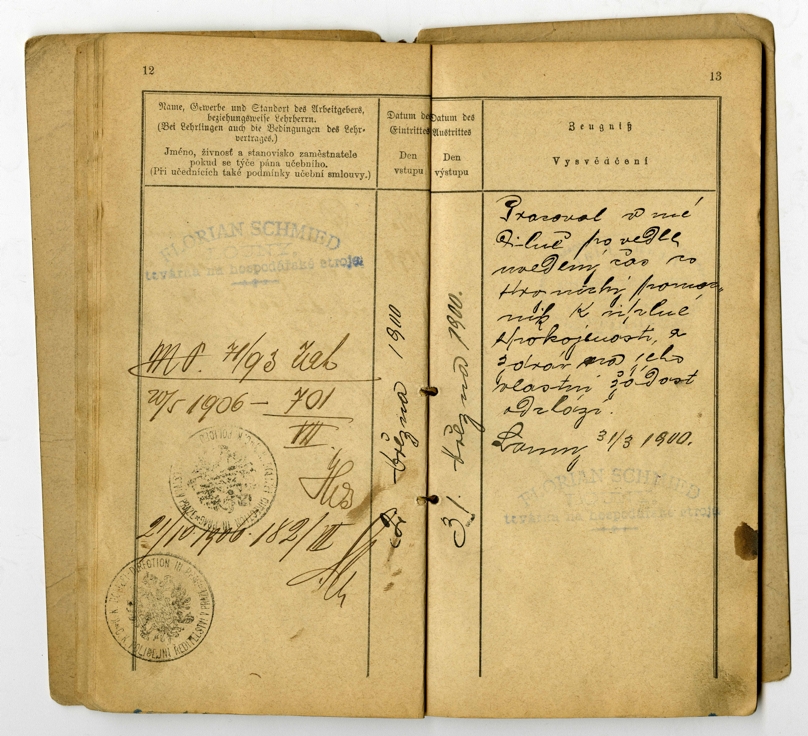 12
Name, Gewerbe und Standort des Arbeitgebers,
beziehungsweise Lehrherrn.
(Bei Lehrlingen auch die Bedingungen des Lehr-
vertrages.)
Jméno, živnosť a stanovisko zaměstnatele
pokud se týče pána učebního.
(Při učednících také podmínky učební smlouvy.)
Datum des
Eintrittes
Den
vstupu
FLORIAN SCHMIED
továrna na hospodářské stroje
71/93
20/5 1906 – 701
VII
182/III
března 1900
K. K. POLIZEI DIRECTION IN PRAG
C. K. POLICEJNÍ ŘEDITELSTVÍ V PRAZE
13
Datum des
Austrittes
Den
výstupu
Zeugniß
Vysvědčení
31. března 1900.
Pracoval v mé
dílně po vedle
uvedený čas co
pomoc-
ník k úplné
spokojenosti, a
zdráv na jeho
vlastní žádost
odchází.
31/3 1900.
FLORIAN SCHMIED
továrna na hospodářské stroje